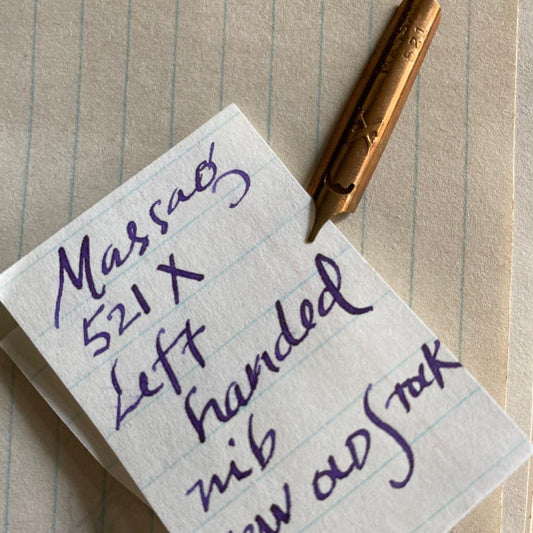 Massag
521 X
Left
handed
nib
New OLD Stock
521